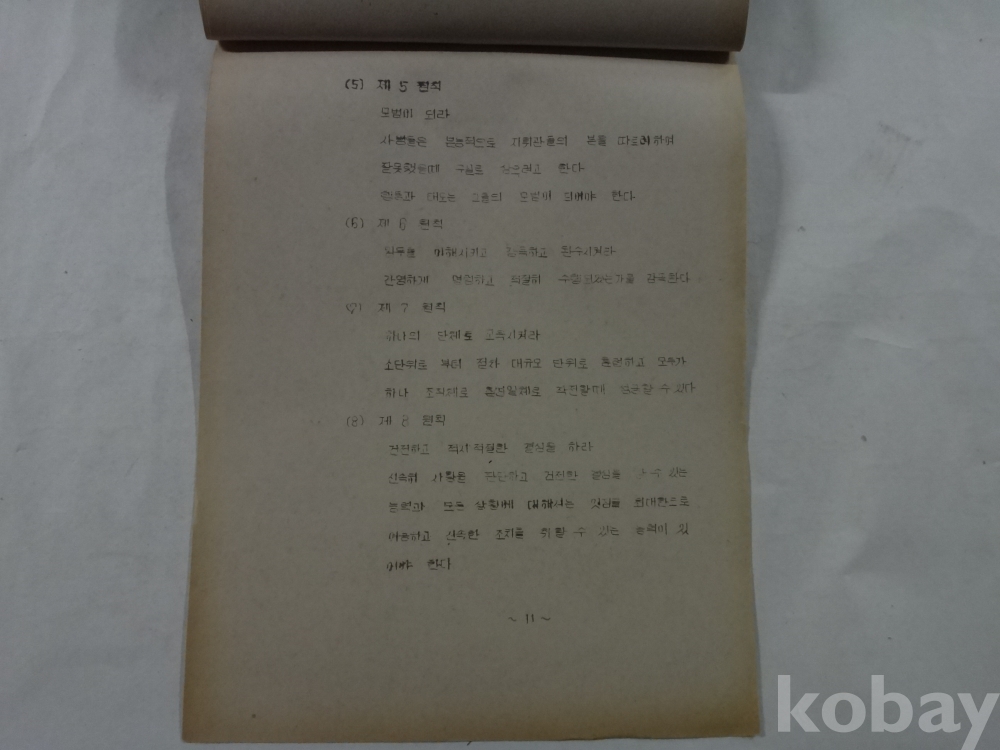 (5) 제 5 원칙
모범이 되라
사병들은 본능적으로 지휘관들의 본을 따르려하며
잘못했을때 구실로 한다
행동과 태도는 그들의 모범이 되어야 한다
(6) 제 6 원칙
임무를 이해시키고 감독하고 완수시켜라
간명하게 명령하고 수행되었는가를 감독한다
(7) 제 7 원칙
하나의 단체로 시켜라
소단위로 부터 점차 대규모 단위로 훈련하고 모두가
하나 조직체로 혼연일체로 작전할때 성공할 수 있다
(8) 제 8 원칙
건전하고 적시적절한 결심을 하라
신속히 상황을 판단하고 건전한 결심을 수 있는
능력과 모든 상황에 대해서는 최대한으로
이용하고 신속한 조치를 취할 수 있는 능력이 있
어야 한다
~ 11 ~
kobay